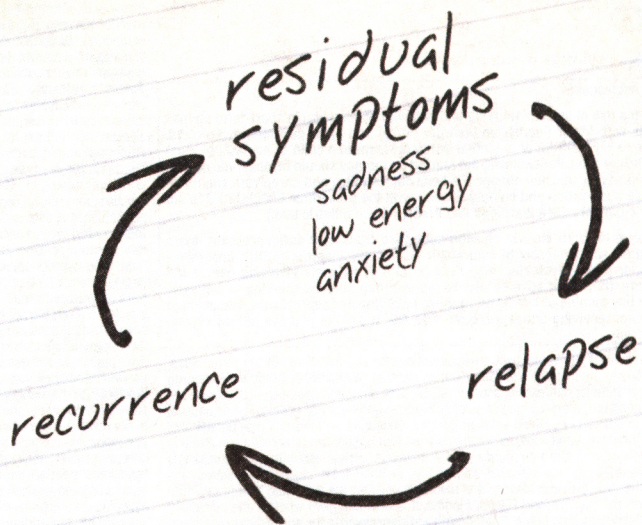 residual
symptoms
sadness
low energy
anxiety
relapse
recurrence